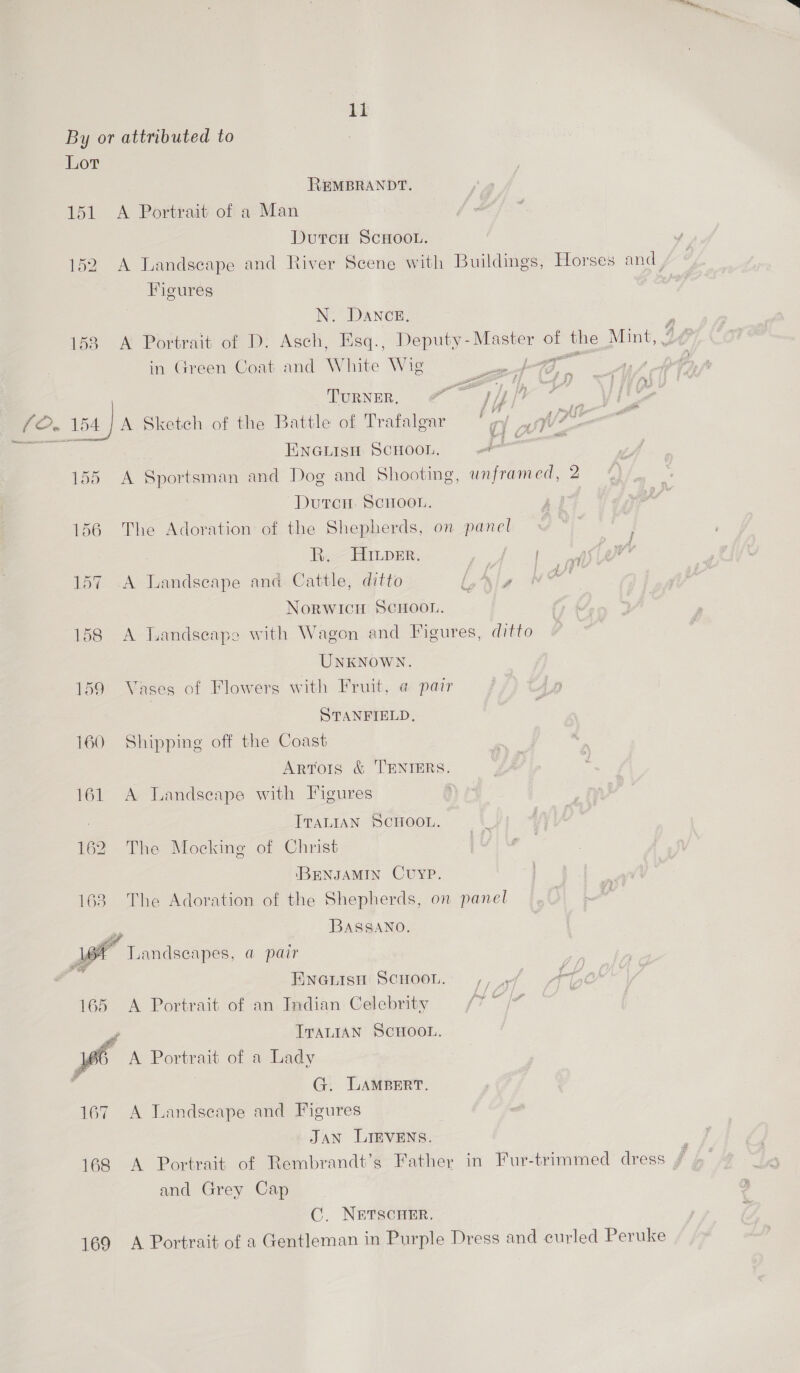 11
By or attributed to
Lot
REMBRANDT.
151 A Portrait of a Man
DUTCH SCHOOL.
152 A Landscape and River Scene with Buildings, Horses and
Figures
N. DANCE.
153 A Portrait of D. Asch, Esq., Deputy-Master of the Mint,
in Green Coat and White Wig
TURNER.
10. 154 A Sketch of the Battle of Trafalgar
ENGLISH SCHOOL.
155 A Sportsman and Dog and Shooting, unframed, 2
DUTCH SCHOOL.
156 The Adoration of the Shepherds, on panel
R. HILDER.
157 A Landscape and Cattle, ditto
NORWICH SCHOOL.
158 A Landscape with Wagon and Figures, ditto
UNKNOWN.
159 Vases of Flowers with Fruit, a pair
STANFIELD.
160 Shipping off the Coast
ARTOIS & TENIERS.
161 A Landscape with Figures
ITALIAN SCHOOL.
162 The Mocking of Christ
BENJAMIN CUYP.
163 The Adoration of the Shepherds, on panel
BASSANO.
164 Landscapes, a pair
ENGLISH SCHOOL.
165 A Portrait of an Indian Celebrity
ITALIAN SCHOOL.
166 A Portrait of a Lady
G. LAMBERT.
167 A Landscape and Figures
JAN LIEVENS.
168 A Portrait of Rembrandt's Father in Fur-trimmed dress
and Grey Cap
C. NETSCHER.
169 A Portrait of a Gentleman in Purple Dress and curled Peruke